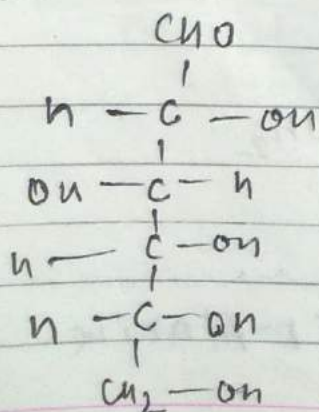 CHO
H - C - OH
OH - C - H
H - C - OH
H - C - OH
CH2 - OH